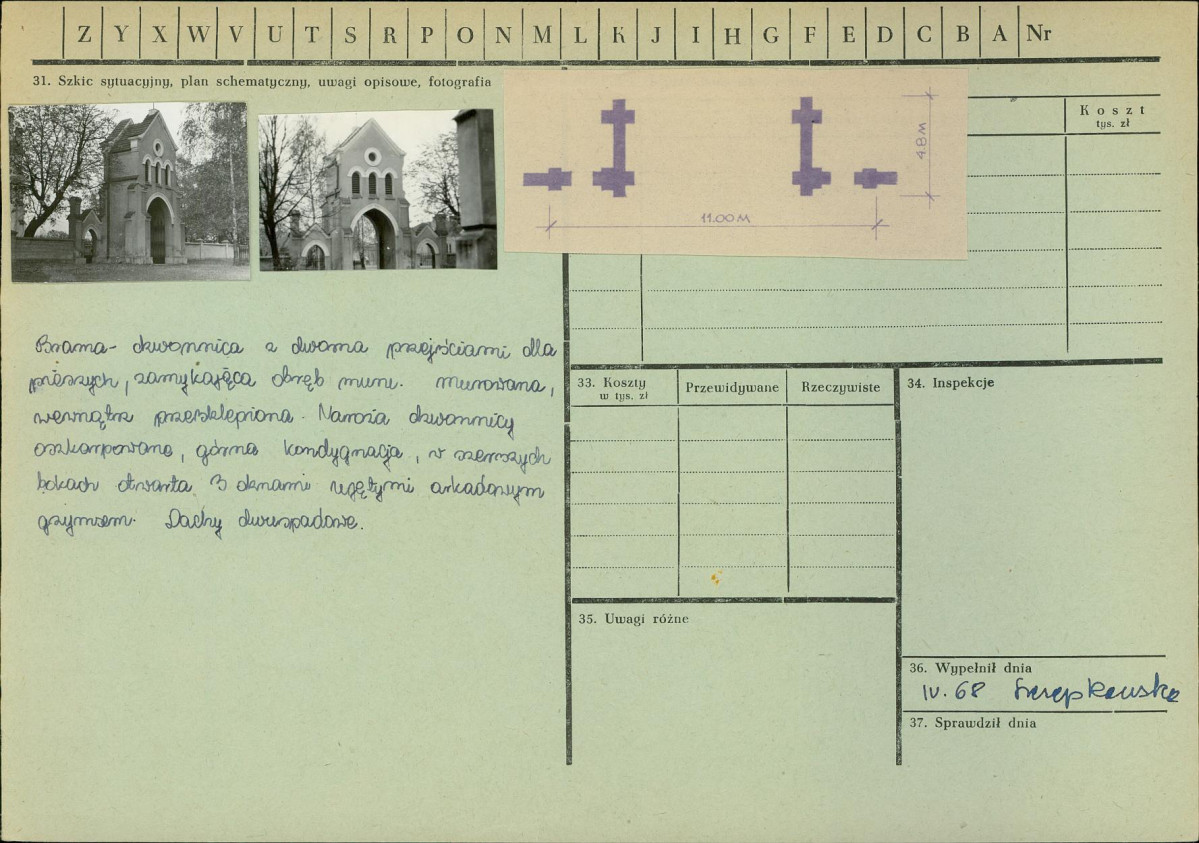 Z Y X W V U T S R P O N M L K J I H G F E D C B A Nr
31. Szkic sytuacyjny, plan schematyczny, uwagi opisowe, fotografia
Koszt
tys. zł
4.8 M
11.00 M
Brama- dzwonnica z dwoma przejściami dla
pieszych, zamykająca obręb muru. Murowana,
wewnątrz przesklepiona. Naroża dzwonnicy
oszkarpowane, górna kondygnacja, w szerszych
bokach otwarta 3 oknami ujętymi arkadowym
gzymsem. Dachy dwuspadowe.
33. Koszty
w tys. zł
Przewidywane
Rzeczywiste
34. Inspekcje
35. Uwagi różne
36. Wypełnił dnia
IV. 68
37. Sprawdził dnia